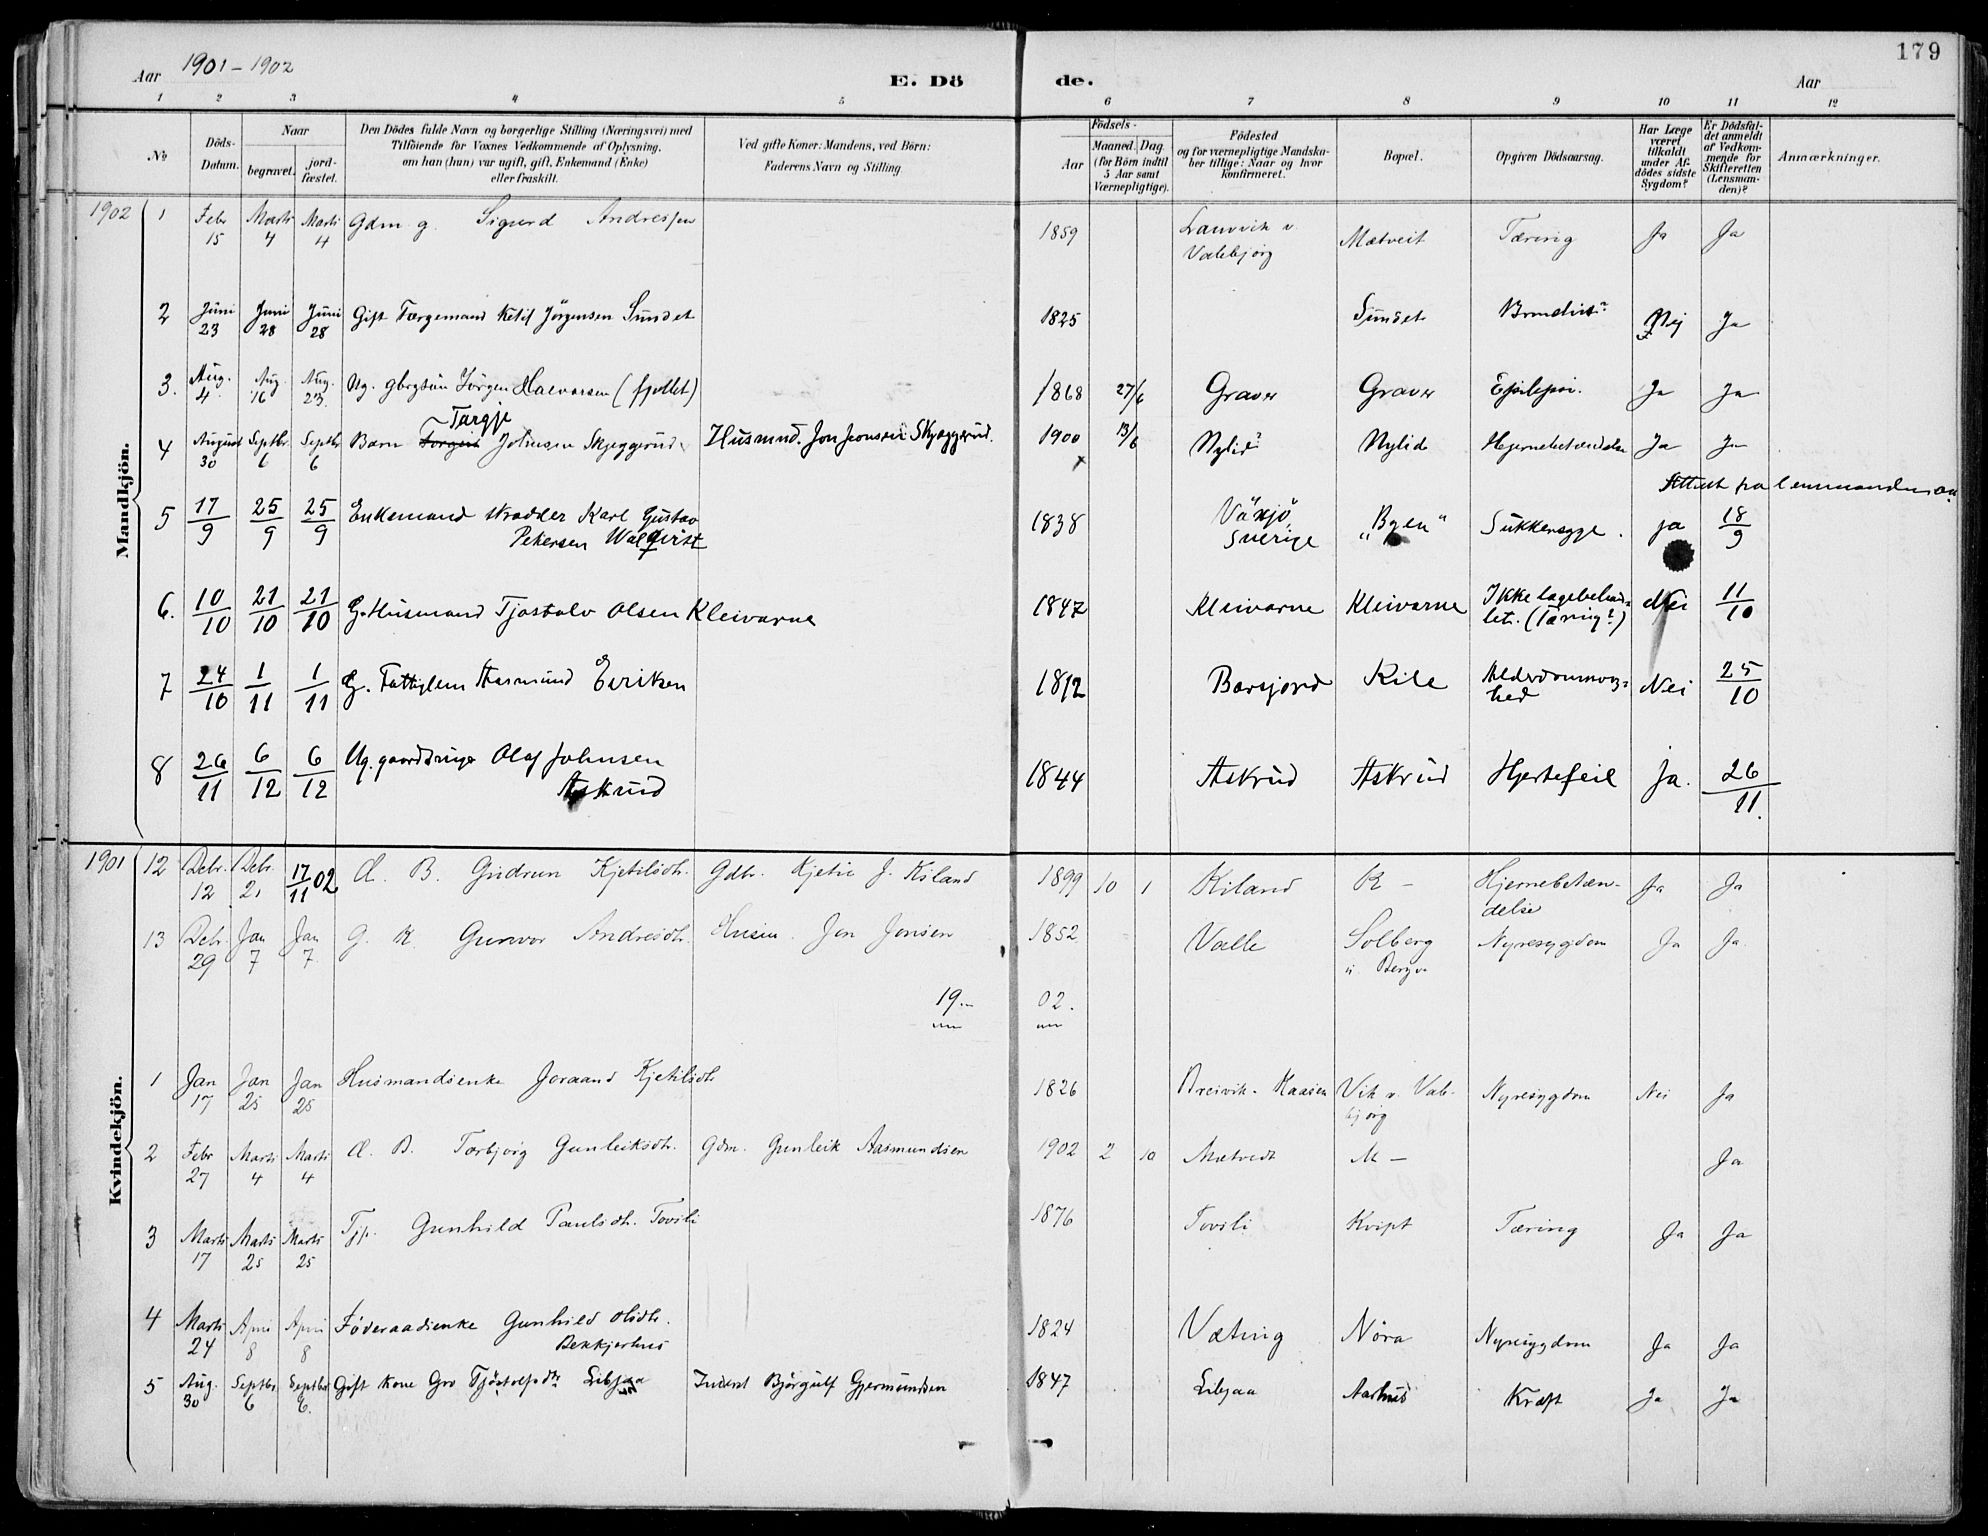 179
Aar 1901-1902 E. Dö de. Aar
1 2 3 4 5 6 7 8 9 10 11 12
No
Döds-Datum.
Naar
begravet. jord-fæstet.
Den Dödes fulde Navn og borgerlige Stilling (Næringsvei) med
Tilföiende for Voxnes Vedkommende af Oplysning,
om han (hun) var ugift, gift, Enkemand (Enke)
eller fraskilt.
Ved gifte Koner: Mandens, ved Börn:
Faderens Navn og Stilling
Födsels-
Aar
Maaned. Dag.
(for Börn indtil
5 Aar samt
Værnepligtige).
Födested
og for værnepligtige Mandska-
ber tillige: Naar og hvor
konfirmeret.
Bopæl.
Opgiven Dödsaarsag.
Har Læge
været
tilkaldt
under Af-
dödes sidste
Sygdom?
Er Dödsfal-
det anmeldt
af Vedkom-
mende for
Skifteretten
(Lensman-
den)?
Anmærkninger.
Mandkjön.
1902 1 Febr 15 Marts 4 Marts 4 Gdm. g. Sigurd Andressen 1859 Lauvvik u. Valebjørg Mætveit Tæring Ja Ja
2 Juni 23 Juni 28 Juni 28 Gift Færgemand Ketil Jørgensen Sundet 1825 Sundet Nej Ja
3. Aug. 4 Aug. 16 Aug. 23 Ug. Jørgen Halvorsen (fjollet) 1868 27/6 Graver Graver Epilepsi. Ja Ja
Targje
4 August 30 Septbr. 6 Septbr 6 Barn Torgeir Johnsen Skjeggerud Husmnd. Jon Jonsen Skjeggerud. 1900 13/6 Nylid Nylid Hjernebetændelse Ja Ja
Attest fra lensmanden
5 17/9 25/9 25/9 Enkemand skrædder Karl Gustav
Petersen Walqvist 1838 Växjö, Sverige "Byen" Sukkersyge. ja 18/9
6. 10/10 21/10 21/10 G. Husmand Tjostolv Olsen Kleivarne 1847 Kleivarne Kleivarne Ikke lægebehand-
let. (Tæring?) Nei 11/10
7 24/10 1/11 1/11 G. Fattiglem Aasmund Eeriksen 1812 Børsjord Kile Alderdomssvag-
hed Nei 25/10
8 26/11 6/12 6/12 Ug. Olaf Johnsen
Askrud 1844 Askrud Askrud Hjertefeil Ja. 26/11.
Kvindekjön.
1901 12 Debr. 12 Debr. 21 17/11 02 Æ. B. Gudrun Kjetilsdtr. Gdbr. Kjetil J. Kiland 1899 10 1 Kiland K - Hjernebetæn-
delse Ja Ja
13 Debr. 29 Jan 7 Jan 7 G. K. Gunvor Andresdtr. Husm. Jon Jonsen 1852 Valle Solberg
u. Berge Nyresygdom Ja Ja
19- 02.
1 Jan 17 Jan 25 Jan 25 Husmandsenke Joraand Kjetilsdtr 1826 Breivik - Kaasen Vik u. Vale-
bjørg Nyresygdom Nei Ja
2 Febr 27 Marts 4 Marts 4 Æ. B. Torbjørg Gunleiksdtr. Gdm. Gunleik Aasmundsen 1902 2 10 Mætvedt M - Ja
3 Marts 17 Marts 25 Marts 25 Tjp. Gunhild Paulsdtr. Tovsli 1876 Tovsli Kvipt Tæring Ja Ja
4 Marts 24 April 8 April 8 Föderaadsenke Gunhild Olsdtr.
Bekkjerhus 1824 Væting Nöra Nyresygdom Ja Ja
5 Aug. 30 Septbr 6 Septbr 6. Gift Kone Gro Tjöstolfsdtr Libjaa Inderst Björgulf Gjermundsen 1847 Libjaa Aarhus Kræft Ja Ja